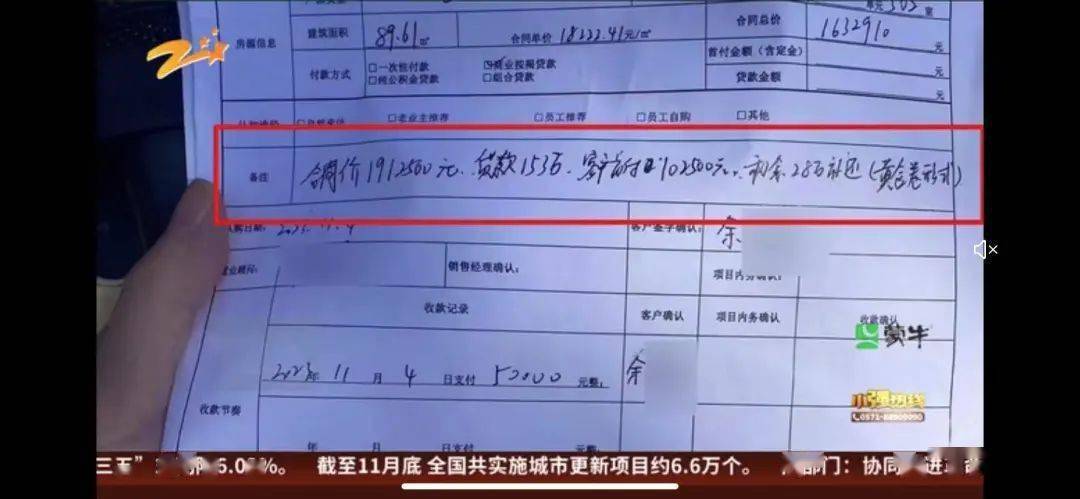 单元 503 室
房源信息
建筑面积 89.61 ㎡ 合同单价 18222.41元/㎡ 合同总价 1632910 元
首付金额(含定金) 元
付款方式 □一次性付款 ☑商业按揭贷款
□纯公积金贷款 □组合贷款 贷款金额 元
□老业主推荐 □员工推荐 □员工自购 □其他
备注 合同价1912500元、贷款153万、客户首付 102500元、剩余28万 (黄金卷形式)
认购日期: 11.4 客户签字确认: 余
置业顾问: 销售经理确认: 项目内务确认:
收款记录 客户确认 项目内务确认 收款确认
蒙牛
2023年 11 月 4 日支付 50000 元整; 余
小强热线
0571-88909090
收款节奏
年 月 日支付 元整;
三五" 6.0 %。 截至11月底 全国共实施城市更新项目约6.6万个。 部门:协同 进